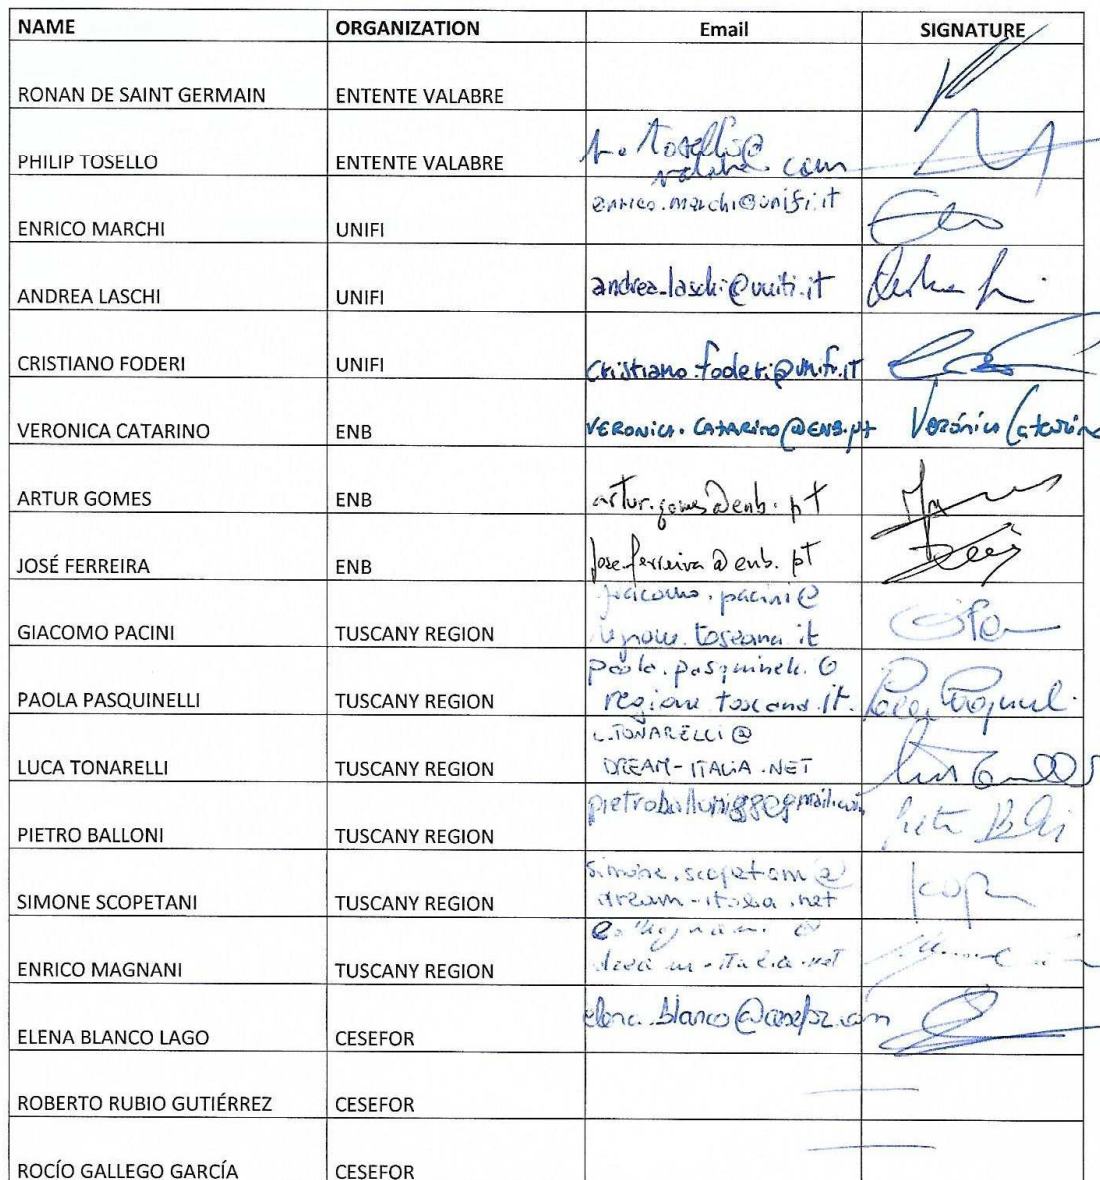 NAME ORGANIZATION Email SIGNATURE
RONAN DE SAINT GERMAIN ENTENTE VALABRE
PHILIP TOSELLO ENTENTE VALABRE p.tosello@
valabre.com
ENRICO MARCHI UNIFI enrico.marchi@unifi.it
ANDREA LASCHI UNIFI andrea.laschi@unifi.it
CRISTIANO FODERI UNIFI cristiano.foderi@unifi.it
VERONICA CATARINO ENB VERONICA.CATARINO@ENB.pt Verónica Catarino
ARTUR GOMES ENB artur.gomes@enb.pt
JOSÉ FERREIRA ENB jose.ferreira@enb.pt
GIACOMO PACINI TUSCANY REGION giacomo.pacini@
regione.toscana.it
PAOLA PASQUINELLI TUSCANY REGION paola.pasquinelli@
regione.toscana.it
LUCA TONARELLI TUSCANY REGION L.TONARELLI@
DREAM-ITALIA.NET
PIETRO BALLONI TUSCANY REGION pietroballoni88@gmail.com
SIMONE SCOPETANI TUSCANY REGION simone.scopetani@
dream-italia.net
ENRICO MAGNANI TUSCANY REGION
dream-italia.net
ELENA BLANCO LAGO CESEFOR elena.blanco@cesefor.com
ROBERTO RUBIO GUTIÉRREZ CESEFOR
ROCÍO GALLEGO GARCÍA CESEFOR